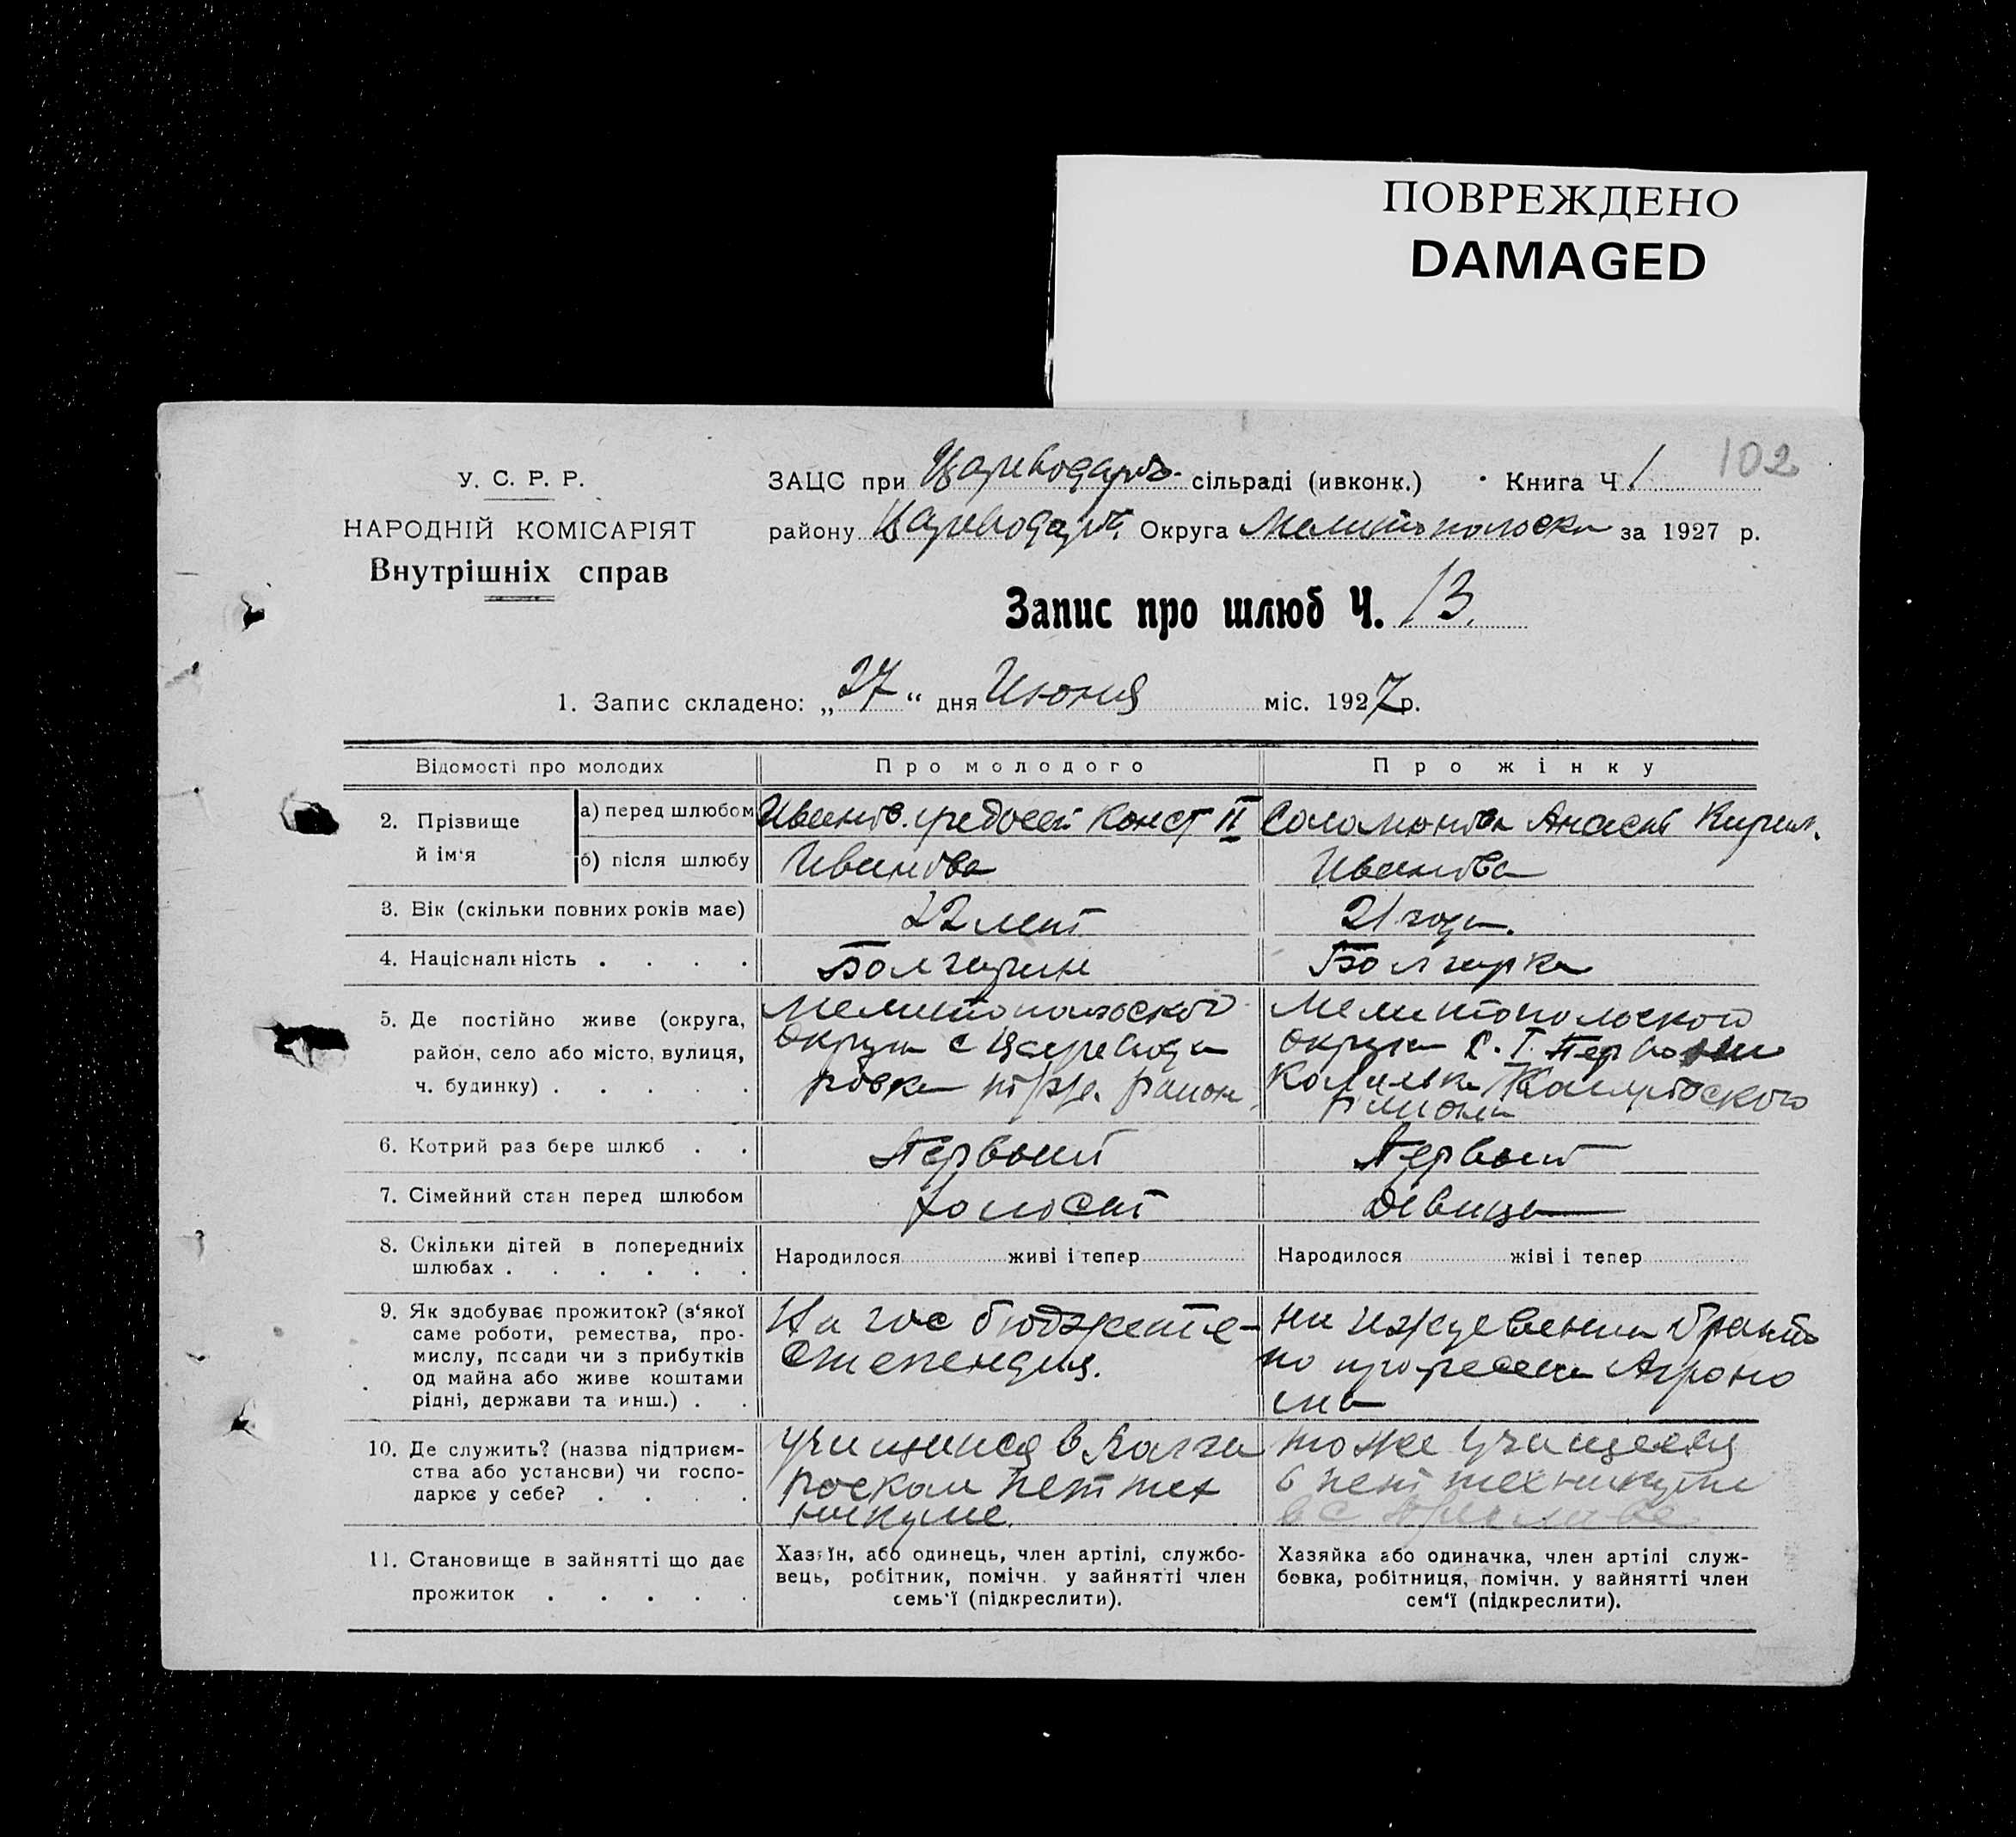 ПОВРЕЖДЕНО
DAMAGED
102
У. С. Р. Р.
НАРОДНІЙ КОМІСАРІЯТ
Внутрішніх справ
ЗАЦС при Цареводар. сільраді (ивконк.) Книга Ч 1
району Цареводар. Округа Мелитопольска за 1927 р.
Запис про шлюб Ч. 13.
1. Запис складено: „27“ дня Июня міс. 1927 р.
Відомості про молодих
Про молодого
Про жінку
2. Прізвище й ім'я
а) перед шлюбом
Иванов Конст II
Соломонова Кирил.
б) після шлюбу
Иванова
Иванова
3. Вік (скільки повних років має)
22 лет
21 года.
4. Національність . . . .
Болгарин
Болгарка
5. Де постійно живе (округа,
район, село або місто, вулиця,
ч. будинку) . . . . .
Мелитопольского
Округа с Царевода
ровка района
Мелитопольского
округа с. I.
района
6. Котрий раз бере шлюб . .
Первый
Первый
7. Сімейний стан перед шлюбом
Холост
Девица
8. Скільки дітей в попередниіх
шлюбах . . . . . .
Народилося живі і тепер
Народилося жіві і тепер
9. Як здобуває прожиток? (з'якої
саме роботи, ремества, про-
мислу, посади чи з прибутків
од майна або живе коштами
рідні, держави та инш.) . .
На гос бюджете-
Стипендия.
на иждевении брата
по професии Агроно
ма
10. Де служить? (назва підприєм-
ства або установи) чи госпо-
дарює у себе? . . . .
учищийся в Болга
роском пет тех
никуме.
тоже учищеяся
в пет техникуме
в с
11. Становище в зайнятті що дає
прожиток . . . . .
Хазяїн, або одинець, член артілі, службо-
вець, робітник, помічн. у зайнятті член
семь'ї (підкреслити).
Хазяйка або одиначка, член артілі служ-
бовка, робітниця, помічн. у зайнятті член
сем'ї (підкреслити).